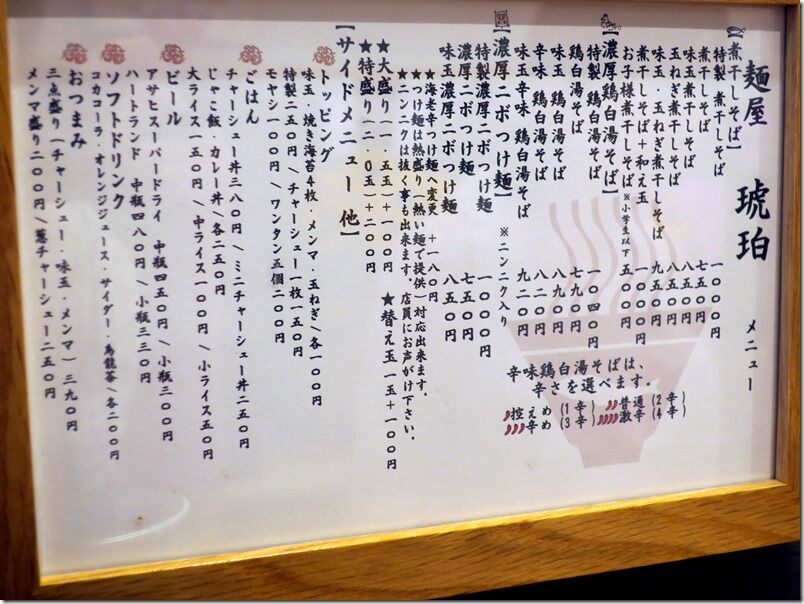 麺屋 琥珀 メニュー
【煮干しそば】
特製 煮干しそば 一〇〇〇円
煮干しそば 七五〇円
味玉煮干しそば 八五〇円
玉ねぎ煮干しそば 八五〇円
味玉・玉ねぎ煮干しそば 九五〇円
煮干しそば+和え玉 九五〇円
お子様煮干しそば ※小学生以下 五〇〇円
【濃厚鶏白湯そば】
特製 鶏白湯そば 一〇四〇円
鶏白湯そば 七九〇円
味玉 鶏白湯そば 八九〇円
辛味 鶏白湯そば 八二〇円
味玉辛味 鶏白湯そば 九二〇円
【濃厚ニボつけ麺】 ※ニンニク入り
特製濃厚ニボつけ麺 一〇〇〇円
濃厚ニボつけ麺 七五〇円
味玉濃厚ニボつけ麺 八五〇円
★海老辛つけ麺へ変更 +一八〇円
★つけ麺は熱盛り(熱い麺で提供)対応出来ます。
★ニンニクは抜く事も出来ます。店員にお声がけ下さい。
★大盛り(一.五玉)+一〇〇円 ★替え玉一玉+一〇〇円
★特盛り(二.〇玉)+二〇〇円
【サイドメニュー 他】
トッピング
味玉・焼き海苔4枚・メンマ・玉ねぎ/各一〇〇円
特製二五〇円/チャーシュー一枚一五〇円
モヤシ一〇〇円/ワンタン五個二〇〇円
ごはん
チャーシュー丼三八〇円/ミニチャーシュー丼二五〇円
じゃこ飯・カレー丼/各二五〇円
大ライス一五〇円/中ライス一〇〇円/小ライス五〇円
ビール
アサヒスーパードライ 中瓶四五〇円/小瓶三〇〇円
ハートランド 中瓶四八〇円/小瓶三三〇円
ソフトドリンク
コカコーラ・オレンジジュース・サイダー・烏龍茶/各二〇〇円
おつまみ
三点盛り(チャーシュー・味玉・メンマ)三九〇円
メンマ盛り二〇〇円/葱チャーシュー二五〇円
辛味鶏白湯そばは、
辛さを選べます。
控えめ(1辛) 普通(2辛)
辛め(3辛) 激辛(4辛)